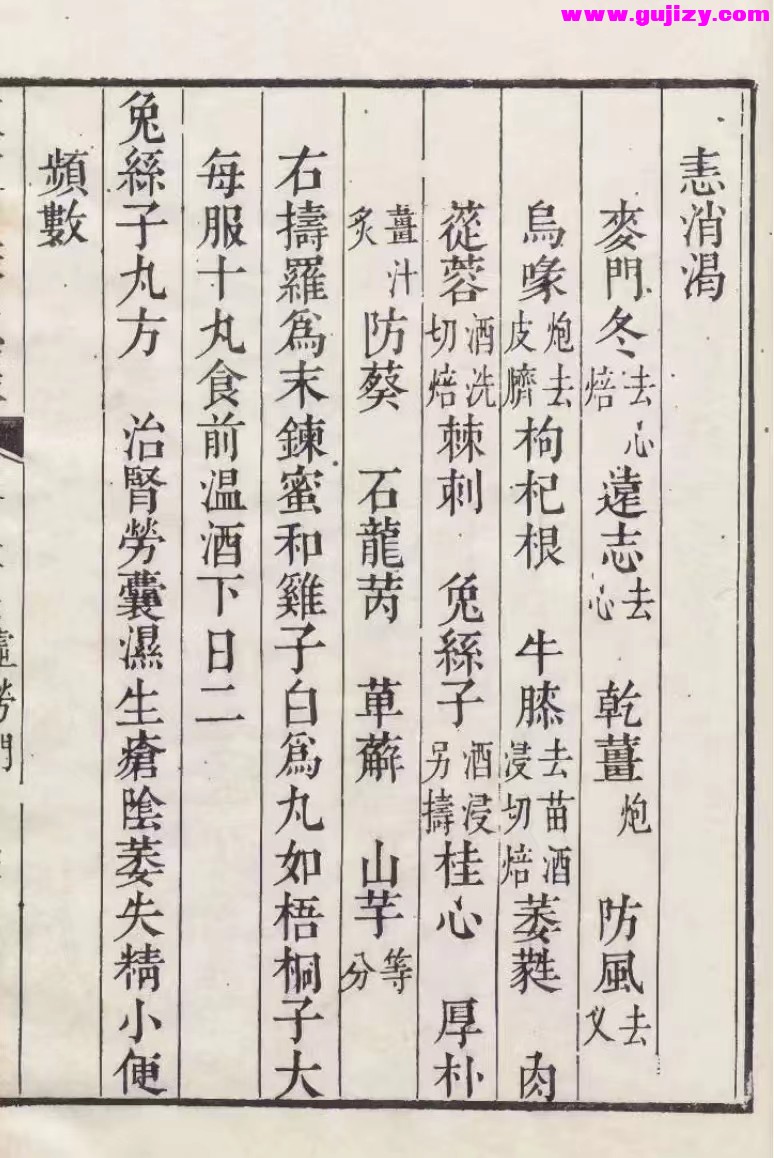 www.gujizy.com
恚消渴
麥門冬去心焙 遠志去心 乾薑炮 防風去叉
烏喙炮去皮臍 枸杞根 牛膝去苗酒浸切焙 萎蕤 肉
蓯蓉酒洗切焙 棘刺 兔絲子酒浸另擣 桂心 厚朴
薑汁炙 防葵 石龍芮 萆薢 山芋等分
右擣羅爲末鍊蜜和雞子白爲丸如梧桐子大
每服十丸食前温酒下日二
兔絲子丸方 治腎勞囊濕生瘡陰萎失精小便
頻數